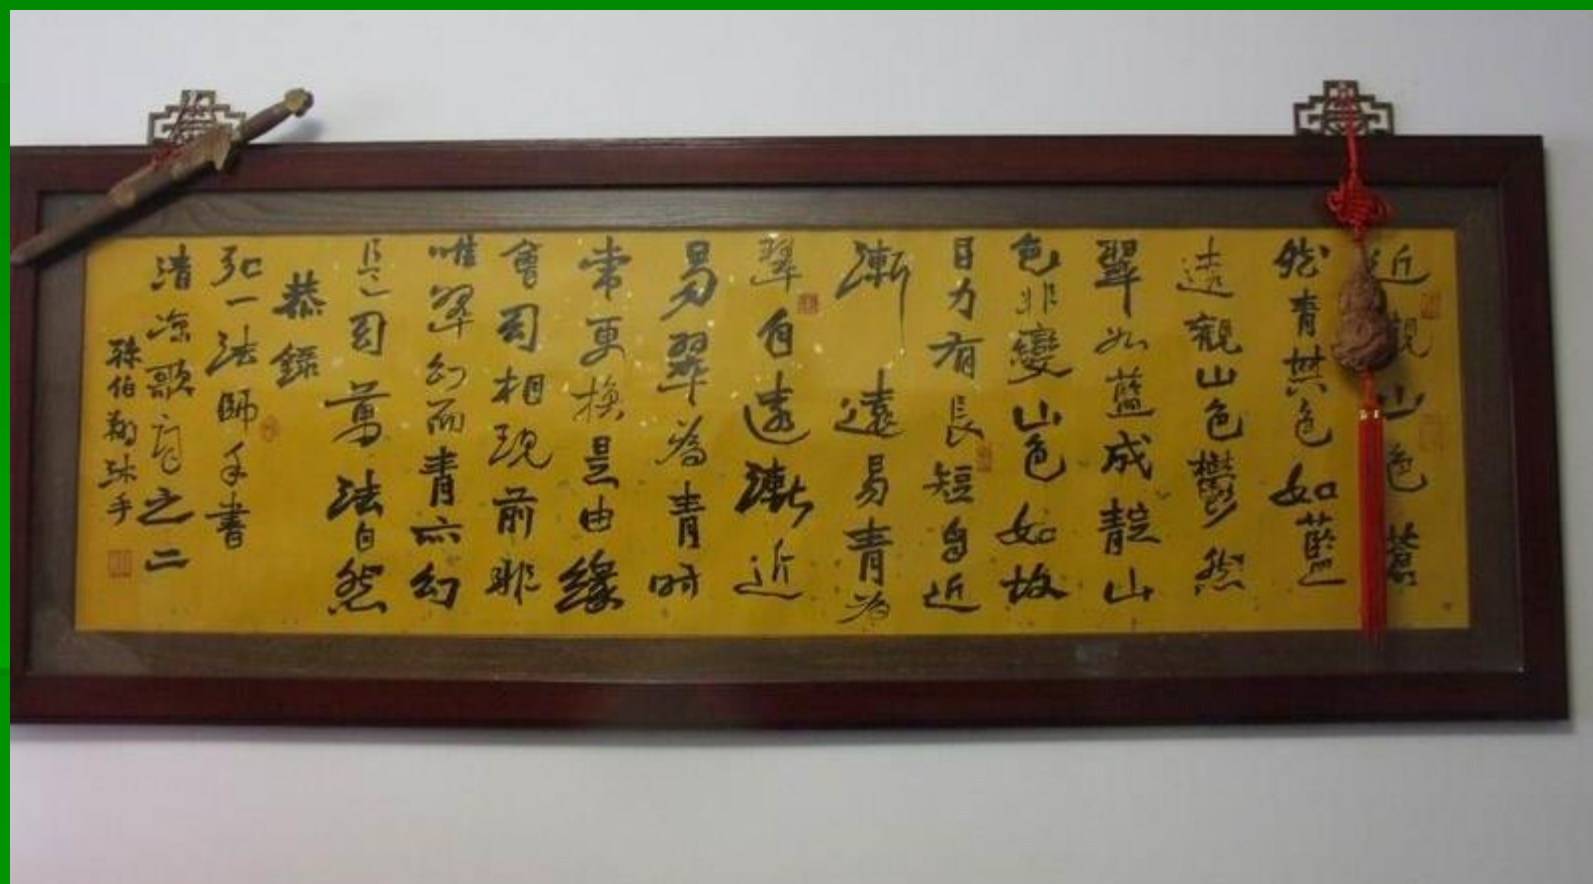 近觀山色蒼
然青其色如藍
遠觀山色鬱然
翠如藍成靛山
色非變山色如故
目力有長短自近
漸遠易青為
翠自遠漸近
易翠為青時
常更換是由緣
會幻相現前非
唯翠幻而青亦幻
是幻萬法皆然
恭錄
弘一法師手書
清涼歌詞之二
孫伯翔沐手